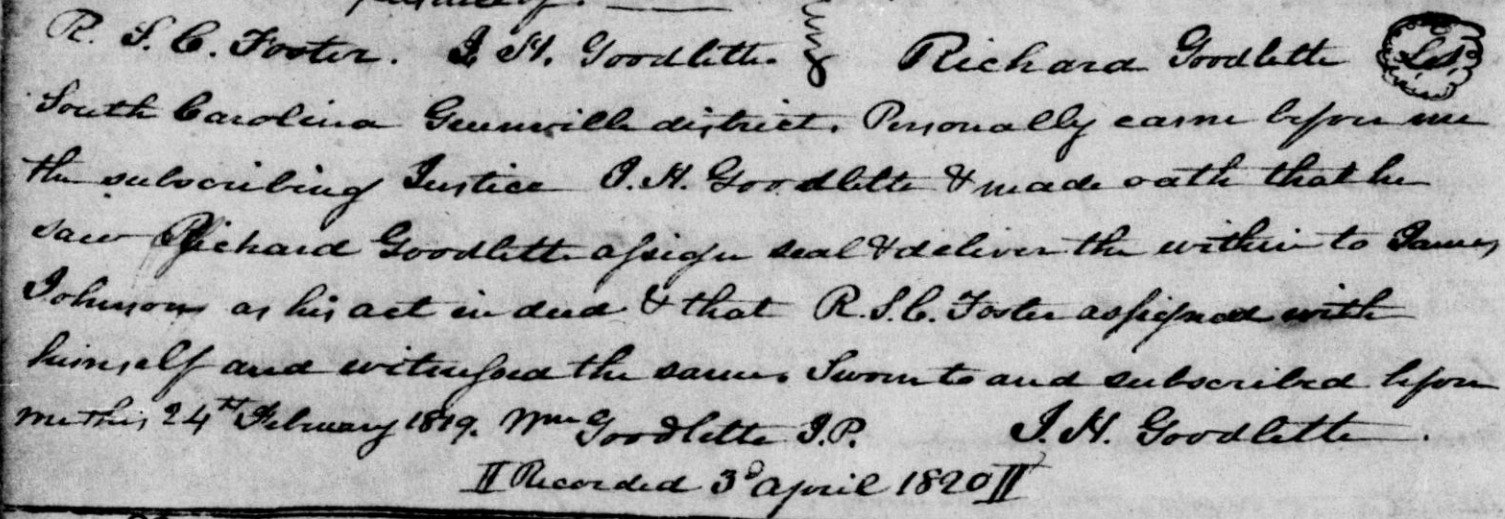 presence of.
R. S. C. Foster. J. H. Goodlette. Richard Goodlette LS
South Carolina Greenville district. Personally came before me
the subscribing Justice J. H. Goodlette & made oath that he
saw Richard Goodlette assign seal & deliver the within to James
Johnson as his act in deed & that R. S. C. Foster assigned with
himself and witnessed the same. Sworn to and subscribed before
me this 24th February 1819. Wm Goodlette J.P. J. H. Goodlette.
Recorded 3d April 1820